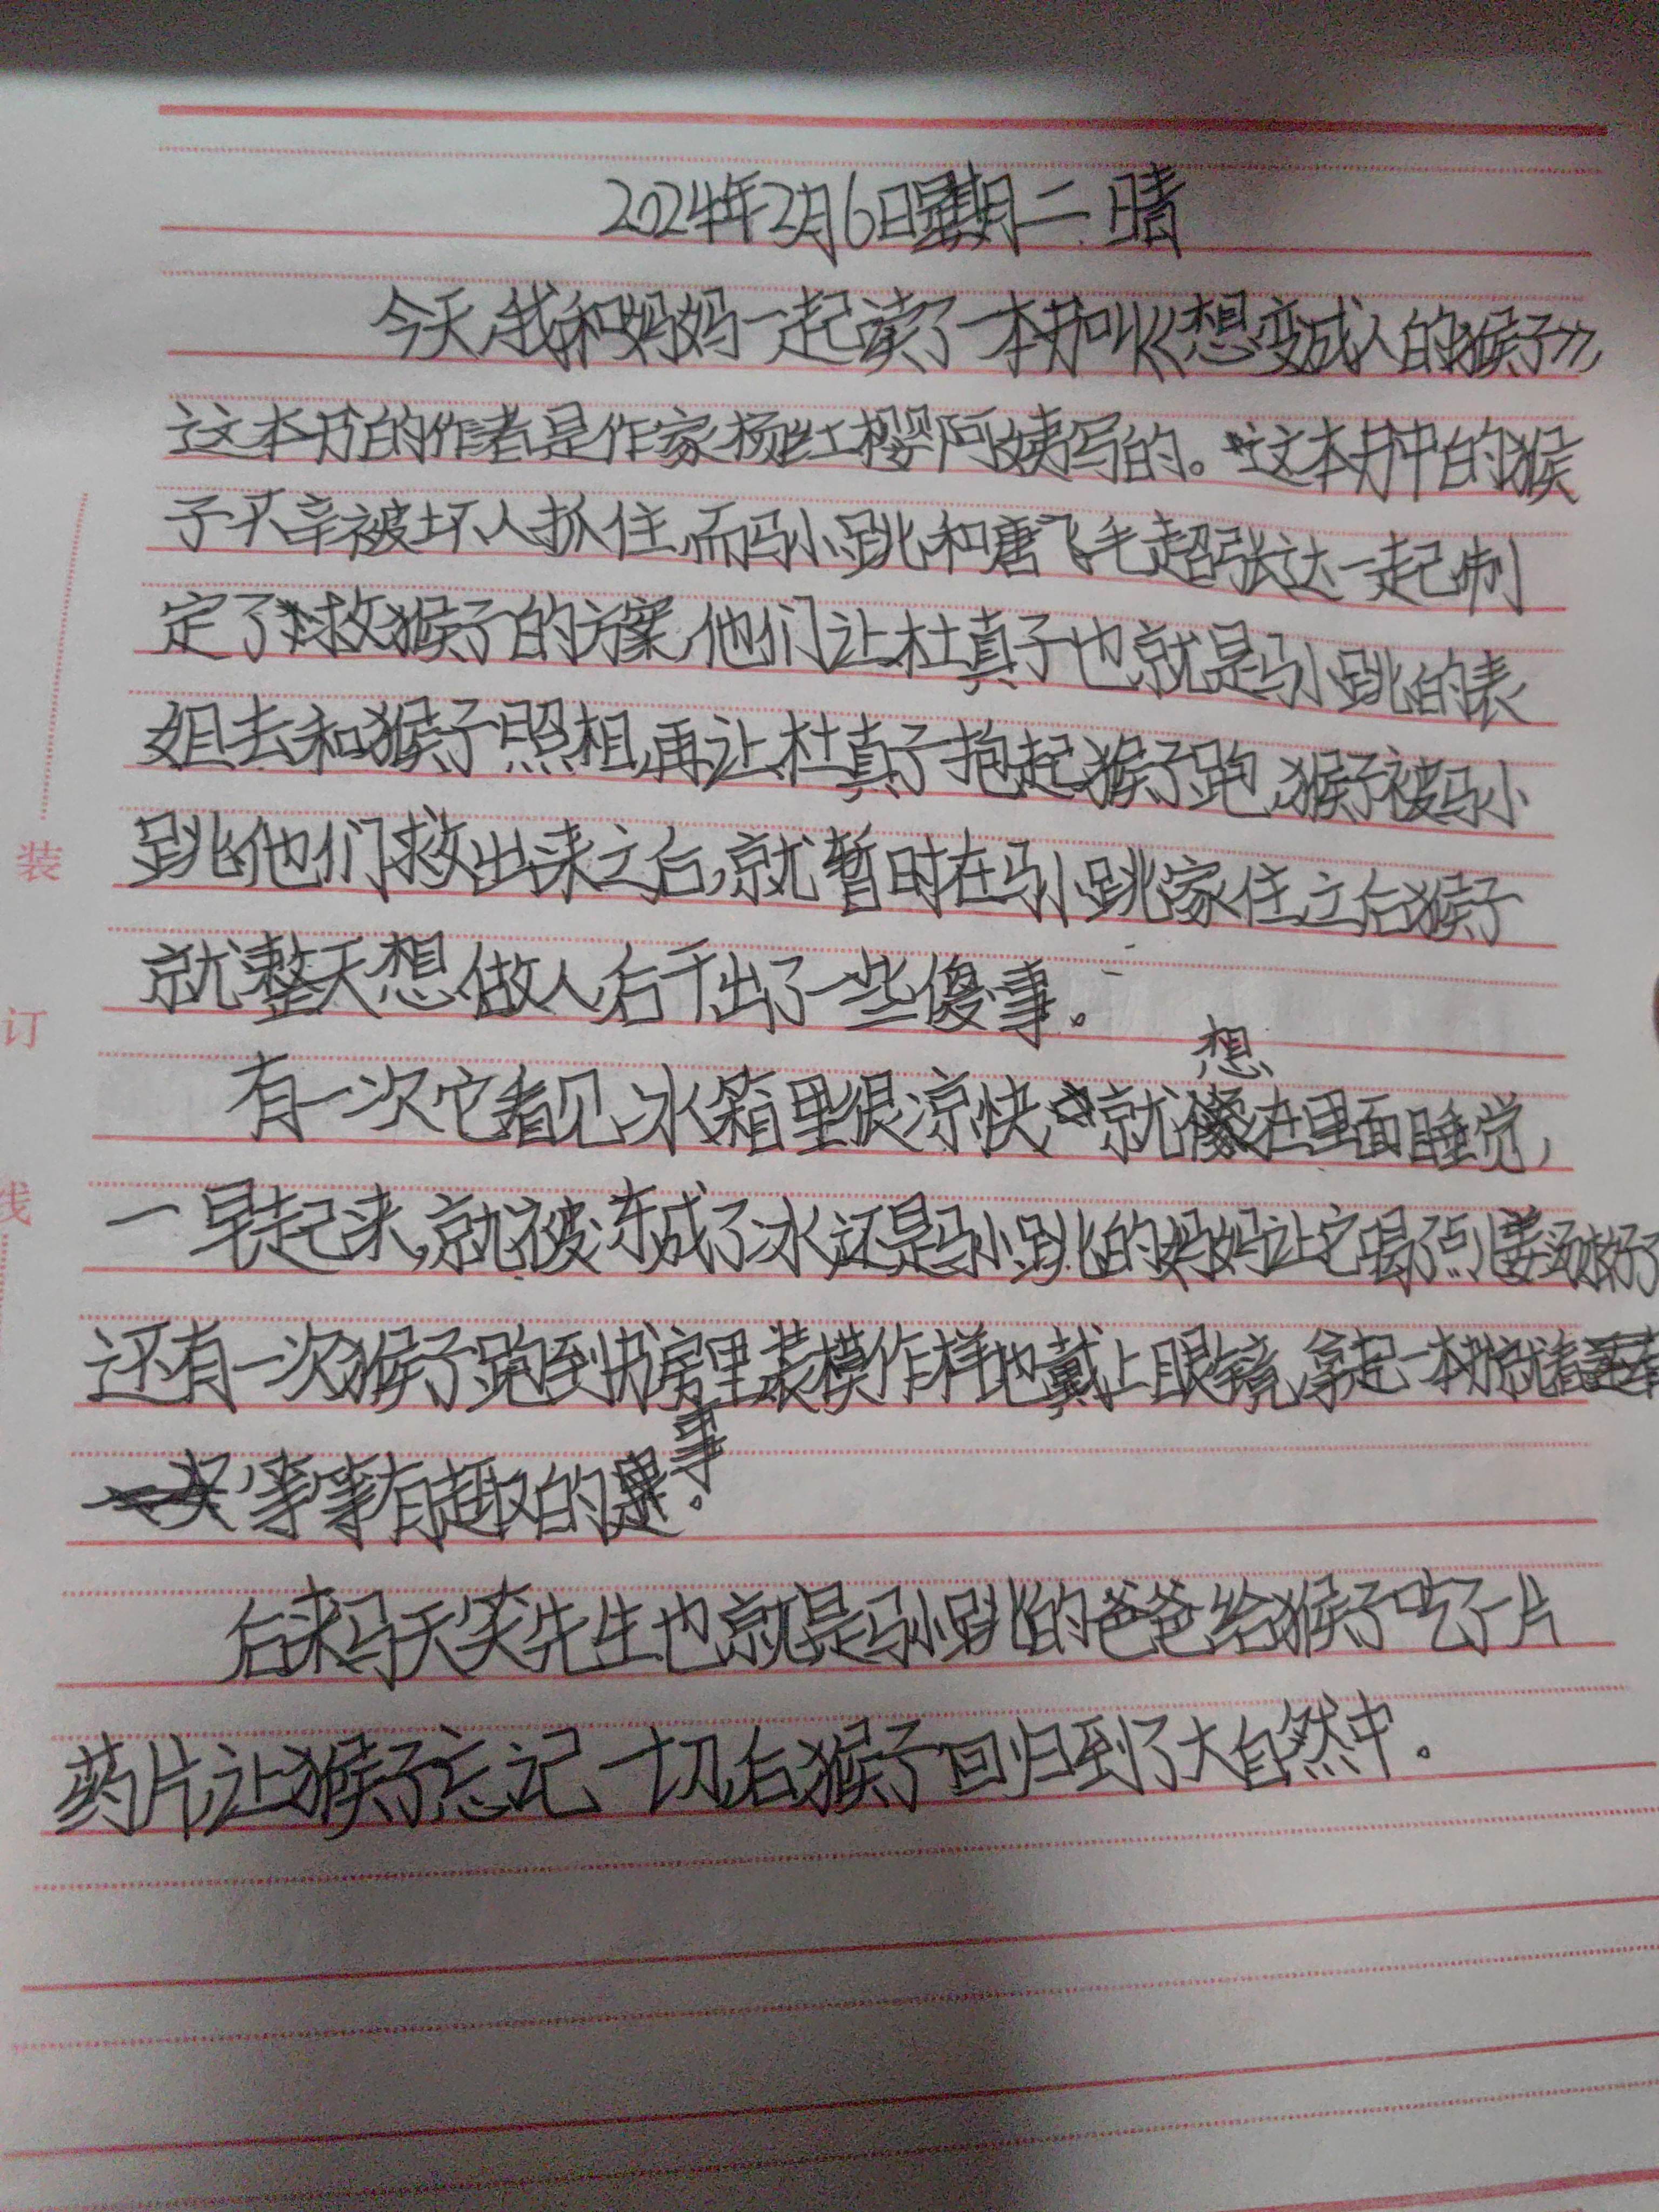 2024年2月6日星期二 晴
今天,我和妈妈一起读了一本书叫《想变成人的猴子》,
这本书的作者是作家杨红樱阿姨写的。这本书中的猴
子不幸被坏人抓住,而马小跳和唐飞毛超张达一起制
定了救猴子的方案,他们让杜真子也就是马小跳的表
姐去和猴子照相,再让杜真子抱起猴子跑,猴子被马小
跳他们救出来之后,就暂时在马小跳家住,之后猴子
就整天想做人,后干出了一些傻事。
想
有一次它看见冰箱里很凉快就在里面睡觉,
一早起来,就被冻成了冰还是马小跳的妈妈让它喝了点儿姜汤才好了
还有一次猴子跑到书房里装模作样地戴上眼镜,拿起一本书就看
等等有趣的事。
后来马天笑先生也就是马小跳的爸爸给猴子吃了一片
药片,让猴子忘记一切,后猴子回归到了大自然中。
装
订
线